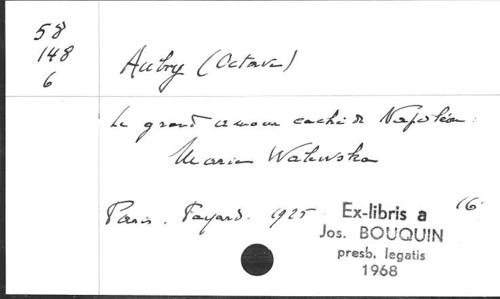 58
148
6
Aubry (Octave)
Le grand amour caché de Napoléon :
Marie Walewska
Paris. Fayard. 1925 16
Ex-libris a
Jos. BOUQUIN
presb. legatis
1968